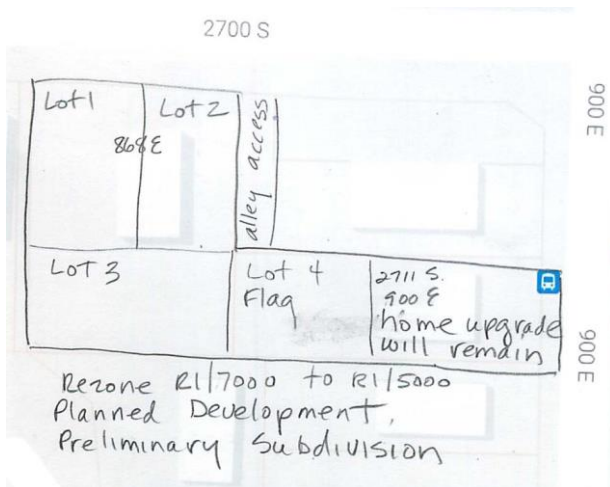 2700 S
900 E
Lot 1
Lot 2
868 E
alley access
LOT 3
Lot 4
Flag
2711 S.
900 E
home upgrade
will remain
900 E
Rezone R1/7000 to R1/5000
Planned Development,
Preliminary Subdivision